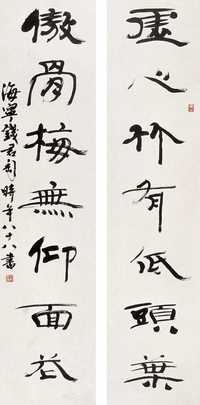 虛心竹有低頭葉
傲骨梅無仰面花
海寧錢君匋時年八十八書